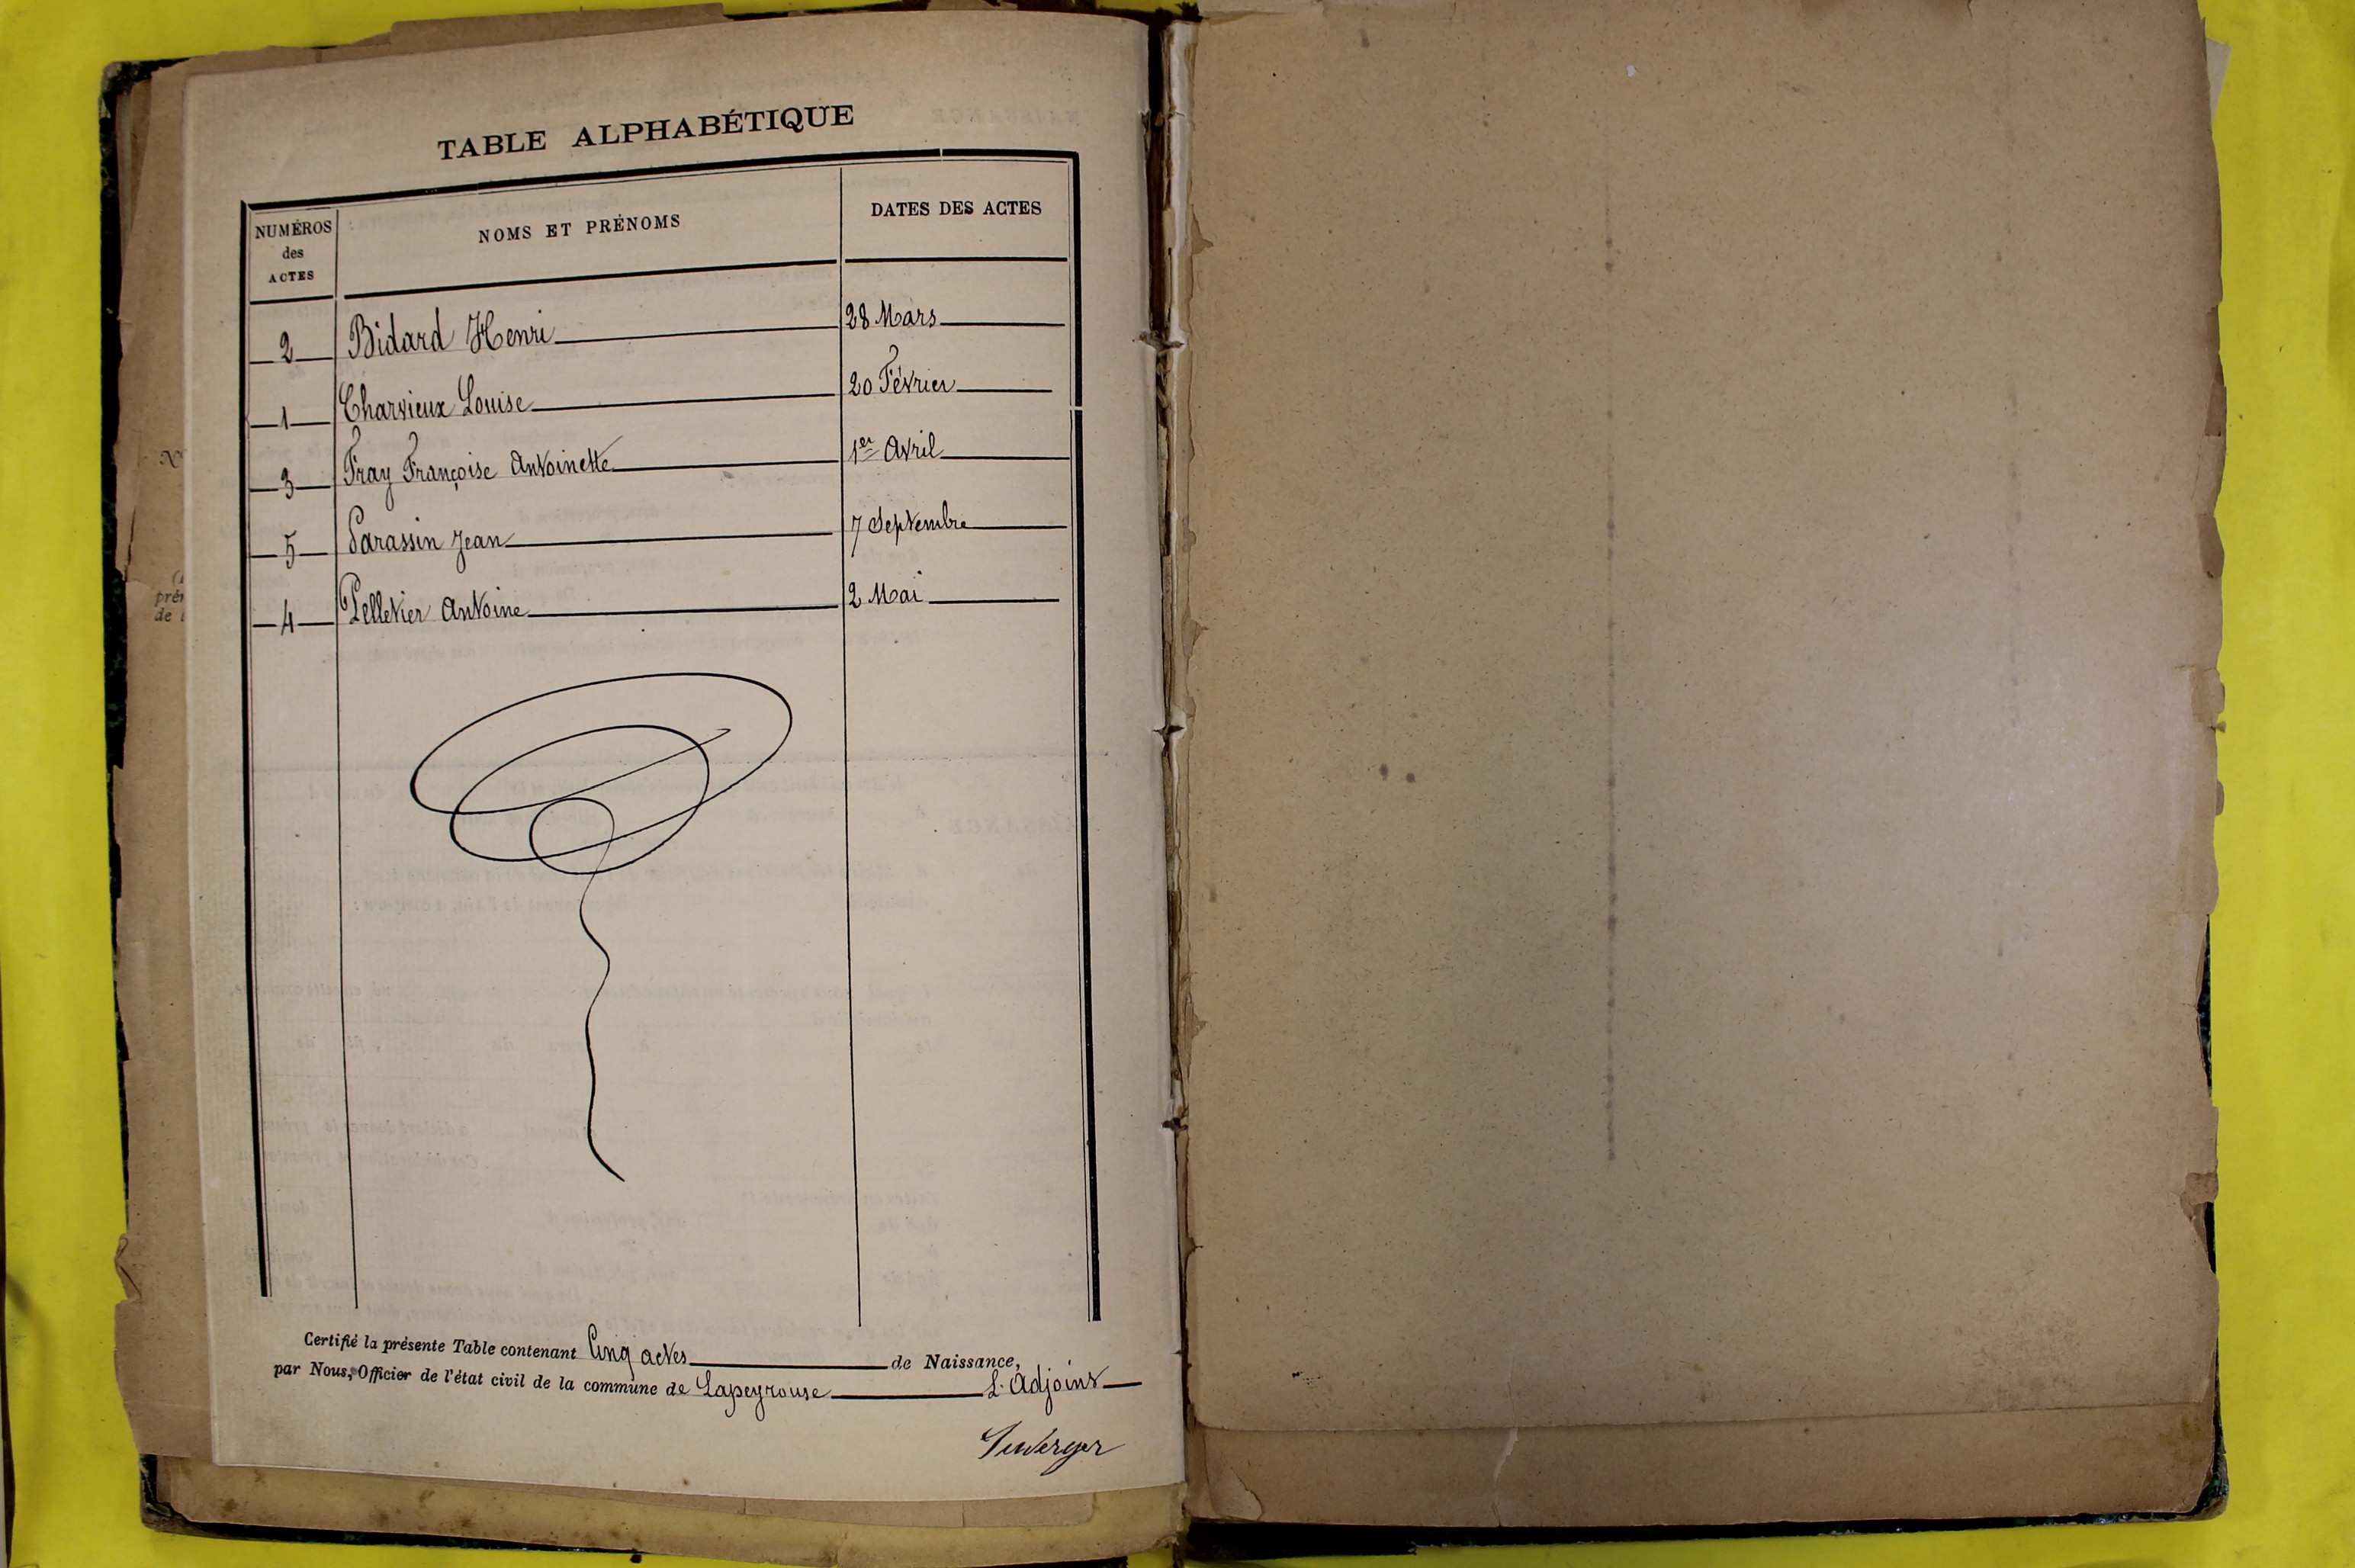 TABLE ALPHABÉTIQUE
NUMÉROS des ACTES NOMS ET PRÉNOMS DATES DES ACTES
2 Bidard Henri 28 Mars
1 Charvieux Louise 20 Février
3 Fray Françoise Antoinette 1er Avril
5 Parassin Jean 7 Septembre
4 Pelletier Antoine 2 Mai
Certifié la présente Table contenant Cinq actes de Naissance,
par Nous, Officier de l'état civil de la commune de Lapeyrouse L'Adjoint